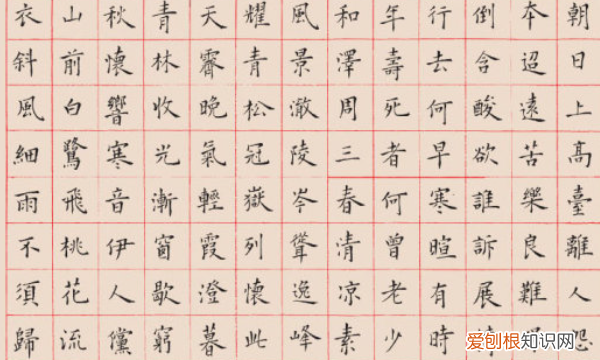 朝日上高臺離人怨
本迢遠苦樂良難
倒含酸欲誰訴展
行去何早寒暄有時
年壽死者何曾老少
和澤周三春清凉素
風景澈陵岑聳逸峰
耀青松冠嶽列懷此
天霽晚氣輕霞澄暮
青林收光漸窗歇窮
秋懷響寒音伊人儻
山前白鷺飛桃花流
衣斜風細雨不須歸
爱刨根知识网